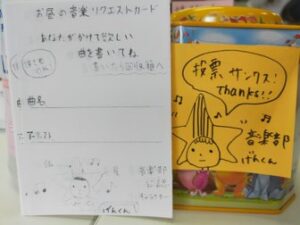 お昼の音楽リクエストカード
あなたがかけて欲しい
曲を書いてね
書いたら回収箱へ
曲名
音楽部
げんくん!
投票サンクス!
thanks!!
音楽部
げんくん